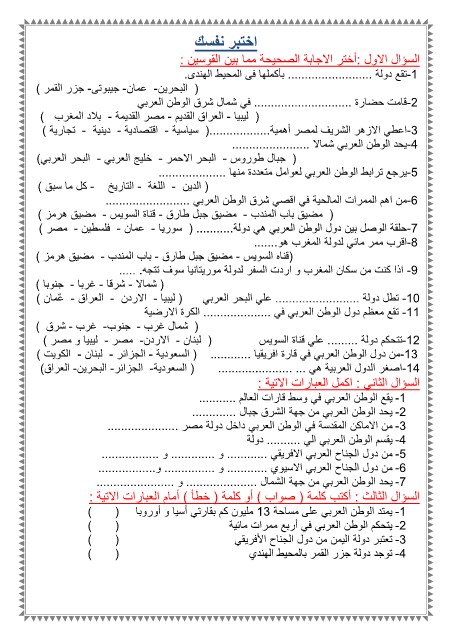 اختبر نفسك
السؤال الاول :أختر الاجابة الصحيحة مما بين القوسين :
1-تقع دولة ...................... بأكملها فى المحيط الهندى.
( البحرين- عمان- جيبوتى- جزر القمر )
2-قامت حضارة ............................ في شمال شرق الوطن العربي
( ليبيا - العراق القديم - مصر القديمة - بلاد المغرب )
3-اعطي الازهر الشريف لمصر أهمية..................( سياسية - اقتصادية - دينية - تجارية )
4-يحد الوطن العربي شمالا ....................
( جبال طوروس - البحر الاحمر - خليج العربي - البحر العربي)
5-يرجع ترابط الوطن العربي لعوامل متعددة منها ....................
( الدين - اللغة - التاريخ - كل ما سبق )
6-من اهم الممرات المالحية في اقصي شرق الوطن العربي ........................
( مضيق باب المندب - مضيق جبل طارق - قناة السويس - مضيق هرمز )
7-حلقة الوصل بين دول الوطن العربي هي دولة........... ( سوريا - عمان - فلسطين - مصر )
8-اقرب ممر ماتي لدولة المغرب هو.......
(قناه السويس - مضيق جبل طارق - باب المندب - مضيق هرمز )
9- اذا كنت من سكان المغرب و اردت السفر لدولة موريتانيا سوف تتجه. .....
( شمالا - شرقا - غربا - جنوبا )
10- تطل دولة ........................ علي البحر العربي ( ليبيا - الاردن - العراق - عُمان )
11- تقع معظم دول الوطن العربي في ................... الكرة الارضية
( شمال غرب - جنوب- غرب - شرق )
12-تتحكم دولة ......... علي قناة السويس ( لبنان - الاردن- مصر - ليبيا و مصر )
13-من دول الوطن العربي في قارة افريقيا ............ ( السعودية - الجزائر - لبنان - الكويت )
14-اصغر الدول العربية هي ... ..................... (السعودية- الجزائر- البحرين- العراق)
السؤال الثاني : اكمل العبارات الاتية :
1- يقع الوطن العربي في وسط قارات العالم ...........
2- يحد الوطن العربي من جهة الشرق جبال ............
3- من الاماكن المقدسة في الوطن العربي داخل دولة مصر ....................
4- يقسم الوطن العربي الي .......... دولة
5- من دول الجناح العربي الافريقي ............ و ............ و ................
6- من دول الجناح العربي الاسيوي ................ و ................و................
7- يحد الوطن العربي من جهة الشمال ................ و ......................
السؤال الثالث : أكتب كلمة ( صواب ) أو كلمة ( خطأ ) أمام العبارات الاتية :
1- يمتد الوطن العربي على مساحة 13 مليون كم بقارتي أسيا و أوروبا ( )
2- يتحكم الوطن العربي في أربع ممرات مائية ( )
3- تعتبر دولة اليمن من دول الجناح الأفريقي ( )
4- توجد دولة جزر القمر بالمحيط الهندي ( )